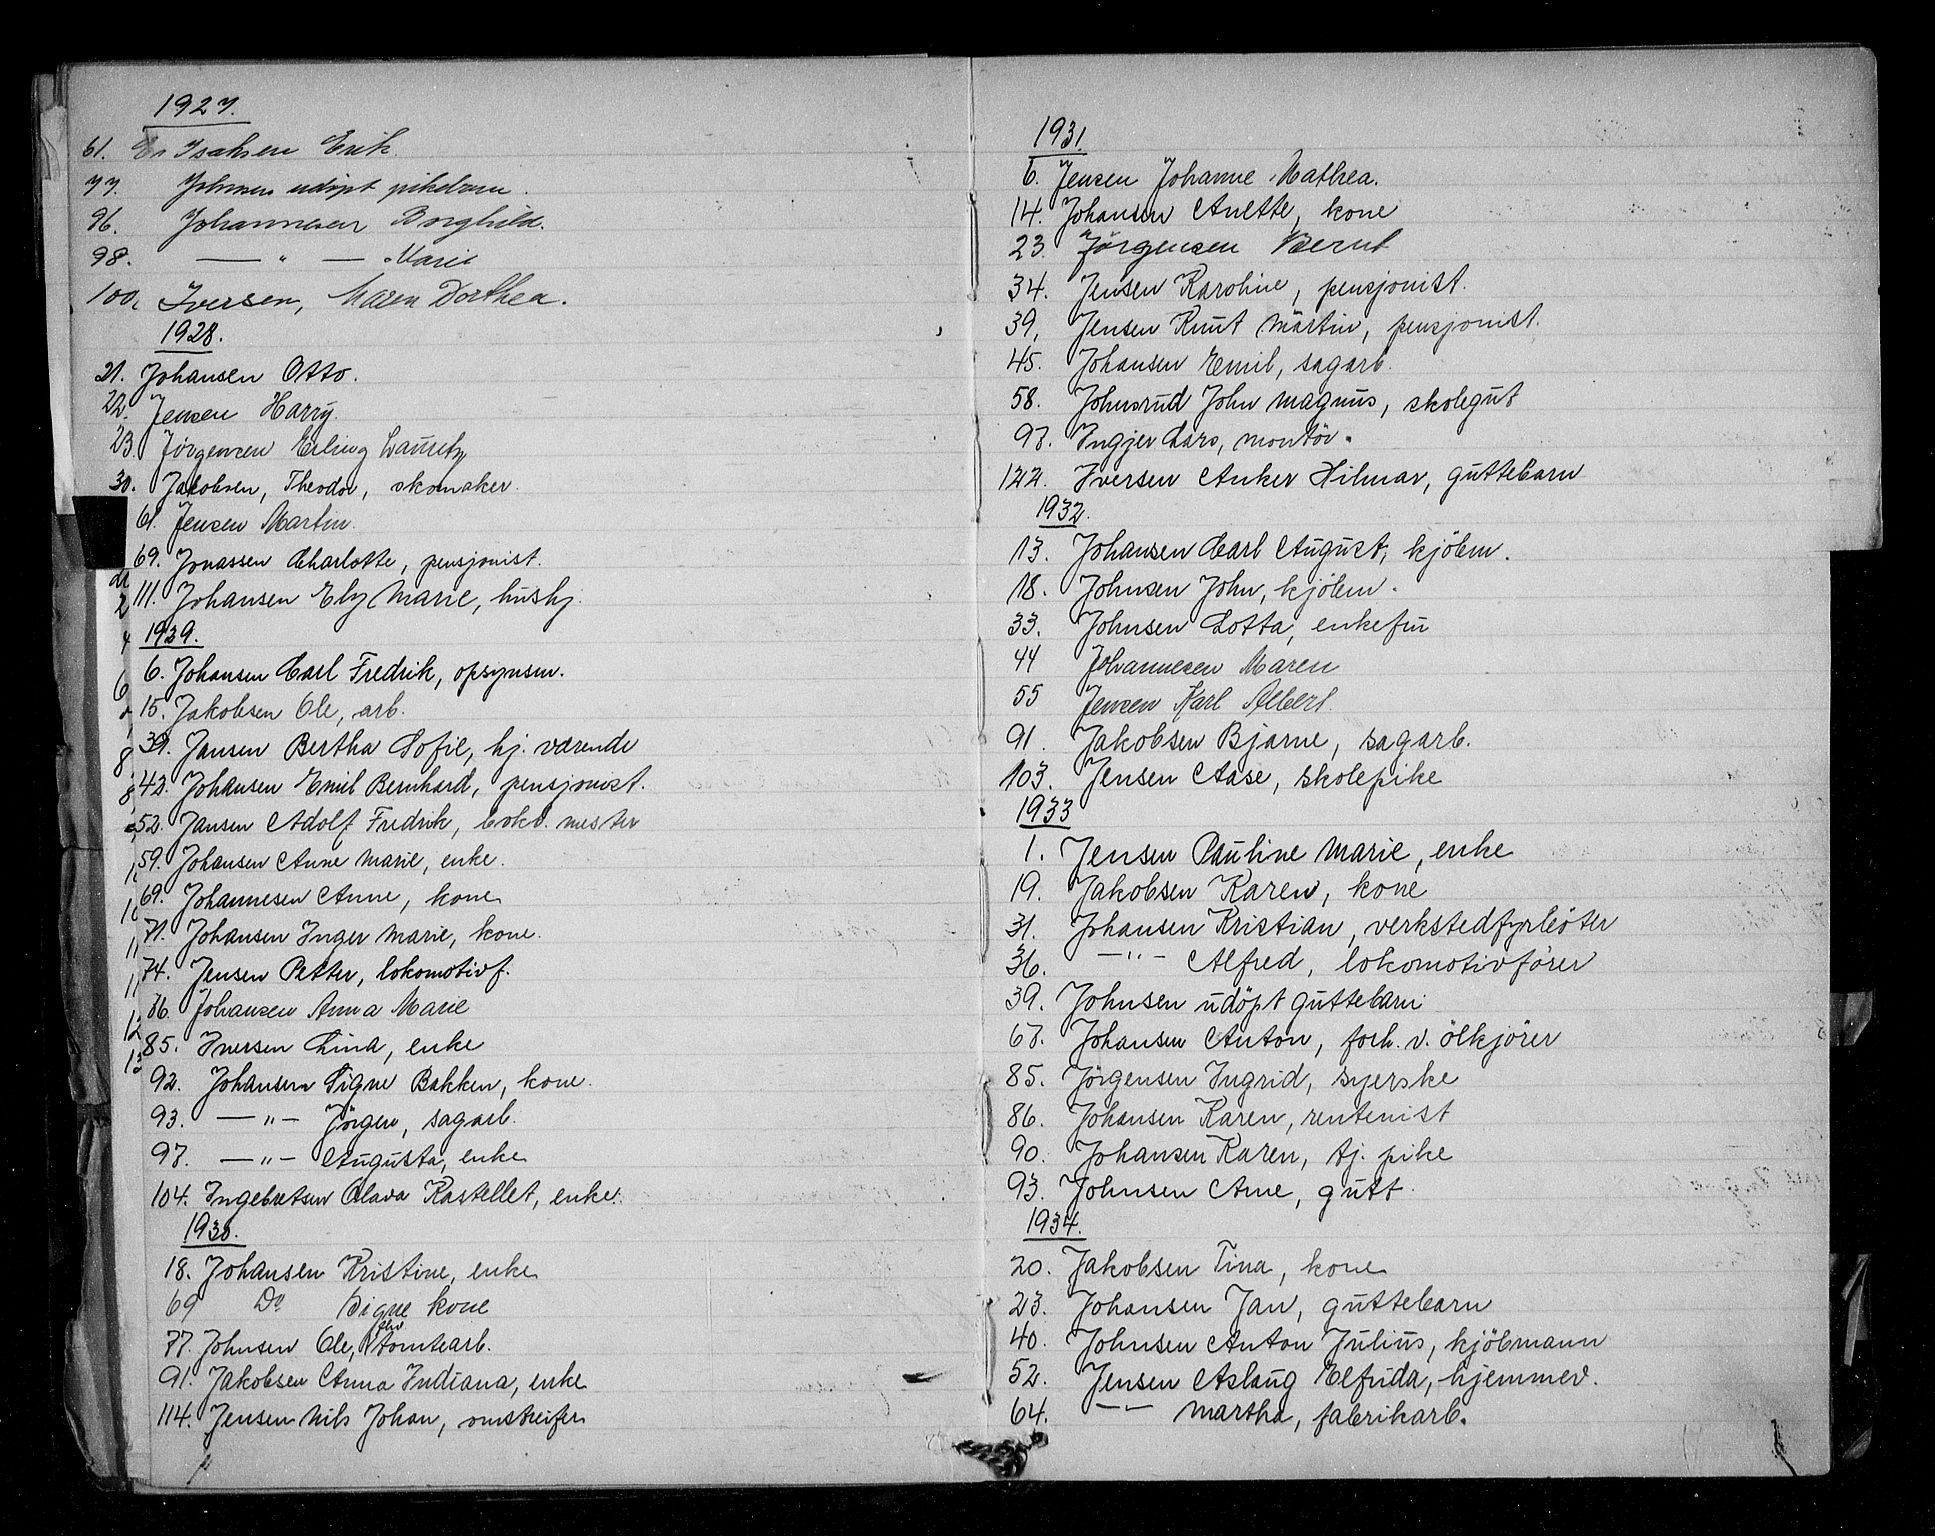 1927.
61. Isaksen Erik.
77. Johnsen udöpt pikebarn.
96. Johannesen Borghild.
98. — " — Marie
100, Iversen, Maren Dorthea.
1928.
21. Johansen Otto.
22. Jensen Harry.
23 Jørgensen Erling Lauritz
30. Jakobsen, Theodor, skomaker.
61. Jensen Martin.
69. Jonassen Charlotte, pensjonist.
111. Johansen Ely Marie, hushj.
1939.
6. Johansen Carl Fredrik, opsynsm.
15. Jakobsen Ole, arb.
39. Jansen Bertha Sofie, hj. værende
42. Johansen Emil Bernhard, pensjonist.
52. Jansen Adolf Fredrik, mester
59. Johansen Anne Marie, enke.
69. Johannesen Anne, kone
71. Johansen Inger Marie, kone.
74. Jensen Petter, lokomotivf.
76. Johansen Anna Marie
85. Iversen Lina, enke
92. Johansen Signe Bakken, kone.
93. — " — Jörgen, sagarb.
97. — " — Augusta, enke
104. Ingebretsen Olava Kastellet, enke.
1930.
18. Johansen Kristine, enke
69 Do Signe kone
77. Johnsen Ole, tomtearb.
91. Jakobsen Anna Indiana, enke
114. Jensen Nils Johan, omstreifer
1931.
6. Jensen Johanne Mathea.
14. Johansen Anette, kone
23. Jörgensen Bernt
34. Jensen Karoline, pensjonist.
39, Jensen Knut Martin, pensjonist.
45. Johansen Emil, sagarb.
58. Johnsrud John Magnus, skolegut
97. Ingjer Lars, montör.
122. Iversen Anker Hilmar, guttebarn
1932.
13. Johansen Carl August, kjöbm.
18. Johnsen John, kjöbm.
33. Johnsen Lotta, enkefru
44 Johannesen Maren
55 Jensen Karl Albert.
91. Jakobsen Bjarne, sagarb.
103. Jensen Aase, skolepike
1933
1. Jensen Pauline Marie, enke
19. Jakobsen Karen, kone
31. Johansen Kristian, verkstedfyrböter
36. — " — Alfred, lokomotivförer
39. Johnsen udöpt guttebarn
67. Johansen Anton, forh. v. ölkjörer
85. Jörgensen Ingrid, syerske
86. Johansen Karen, rentenist
90. Johansen Karen, tj. pike
93. Johnsen Arne, gutt
1934.
20. Jakobsen Tina, kone
23. Johansen Jan, guttebarn
40. Johnsen Anton Julius, kjöbmann
52. Jensen Aslaug Elfrida, hjemmev.
64. — " — Martha, fabrikarb.